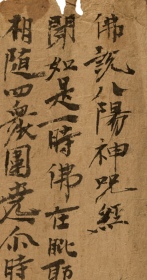 佛說八陽神呪經
聞如是一時佛在毗耶
相随四衆圍遶尒時